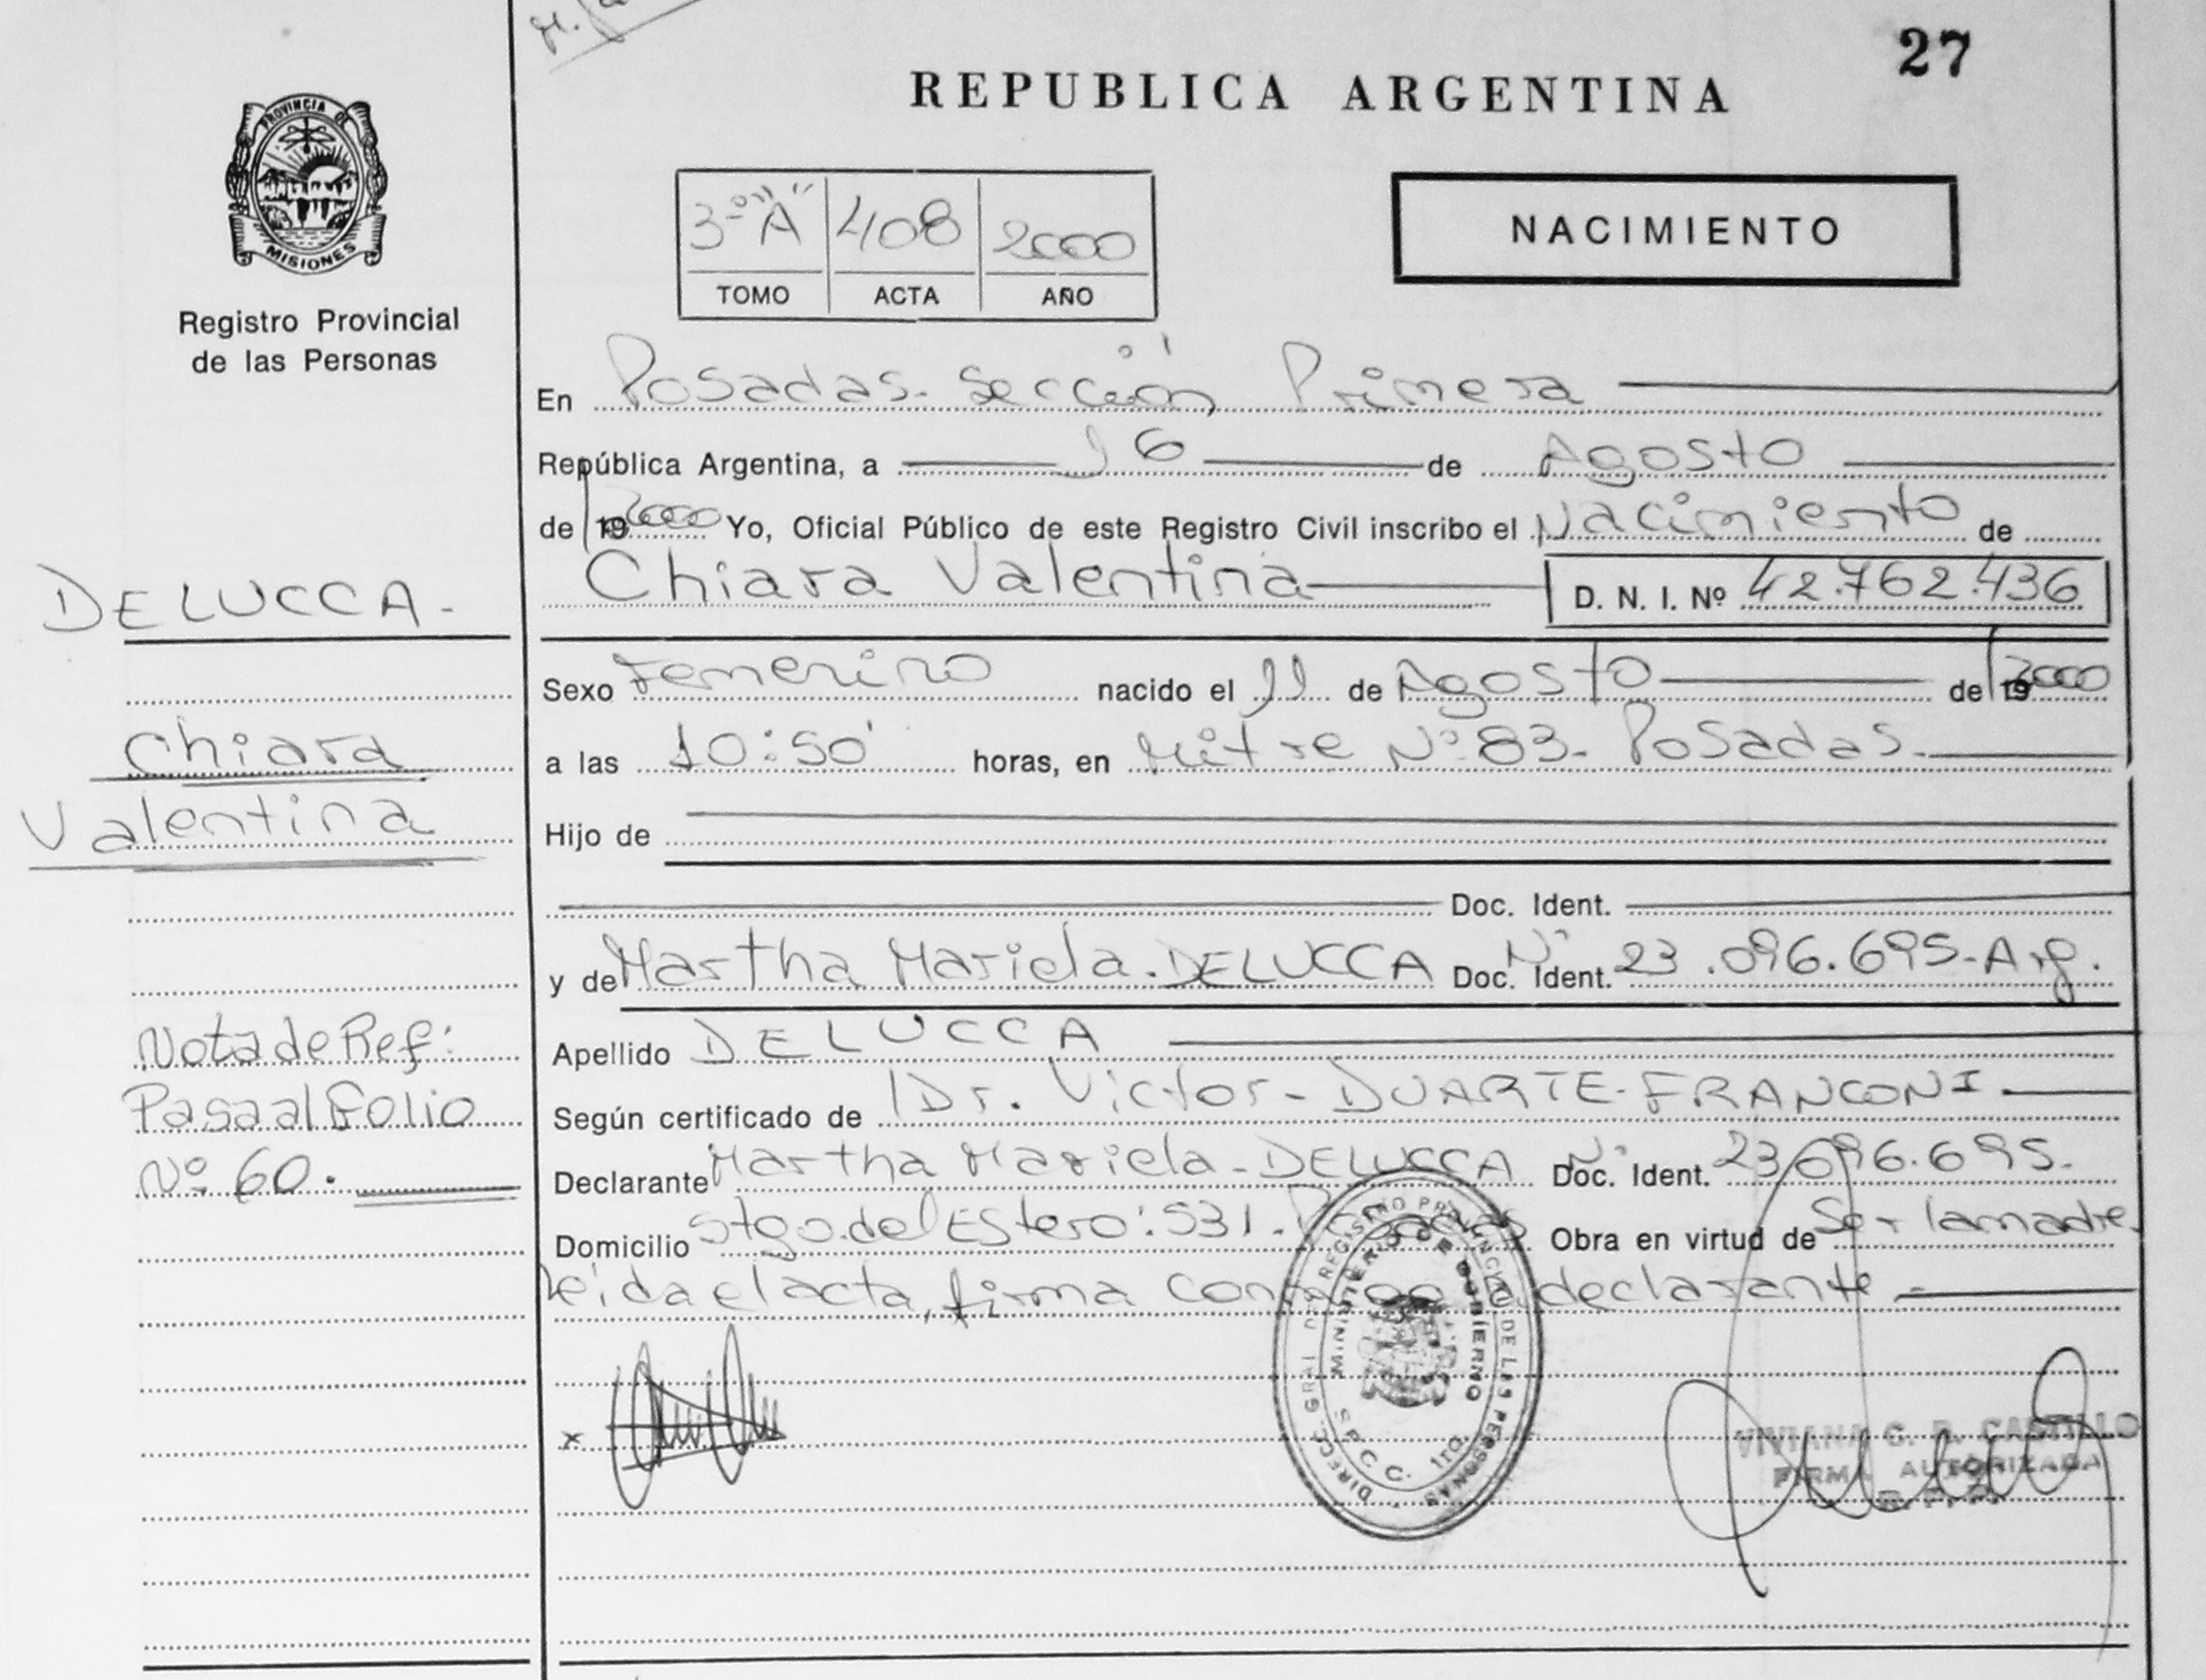 27
REPUBLICA ARGENTINA
PROVINCIA DE
MISIONES
Registro Provincial
de las Personas
3º "A" 408 2000
TOMO ACTA AÑO
NACIMIENTO
En Posadas-Sección Primera
República Argentina, a 16 de Agosto
de 19 2000 Yo, Oficial Público de este Registro Civil inscribo el Nacimiento de
Chiara Valentina D. N. I. Nº 42.762.436
DELUCCA-
Chiara
Valentina
Sexo Femenino nacido el 11 de Agosto de 19 2000
a las 10:50' horas, en Mitre Nº 83- Posadas.
Hijo de
Doc. Ident.
y de Martha Mariela-DELUCCA Doc. Ident. Nº 23.096.695-Arg.
Nota de Ref:
Pasa al Folio
Nº 60.
Apellido DELUCCA
Según certificado de Dr. Victor-DUARTE-FRANCONI
Declarante Martha Mariela-DELUCCA Doc. Ident. Nº 23.096.695.
Domicilio Stgo.del Estero:531-Posadas Obra en virtud de Ser la madre.
Leida el acta, firma conmigo la declarante
x
DIRECC. GRAL DEL REGISTRO PROVINCIAL DE LAS PERSONAS
MINISTERIO DE GOBIERNO
VIVIANA G. R. CASTILLO
FIRMA AUTORIZADA
R. P. P.